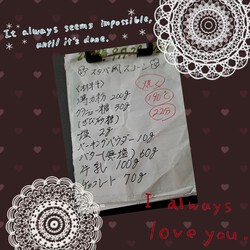 It always seems impossible,
until it's done.
スタバ風スコーン
(材料)
薄力粉 200g
グラニュー糖 30g
塩 2g
ベーキングパウダー 10g
バター(無塩) 60g
牛乳 100g
チョコレート 70g
I always
love you